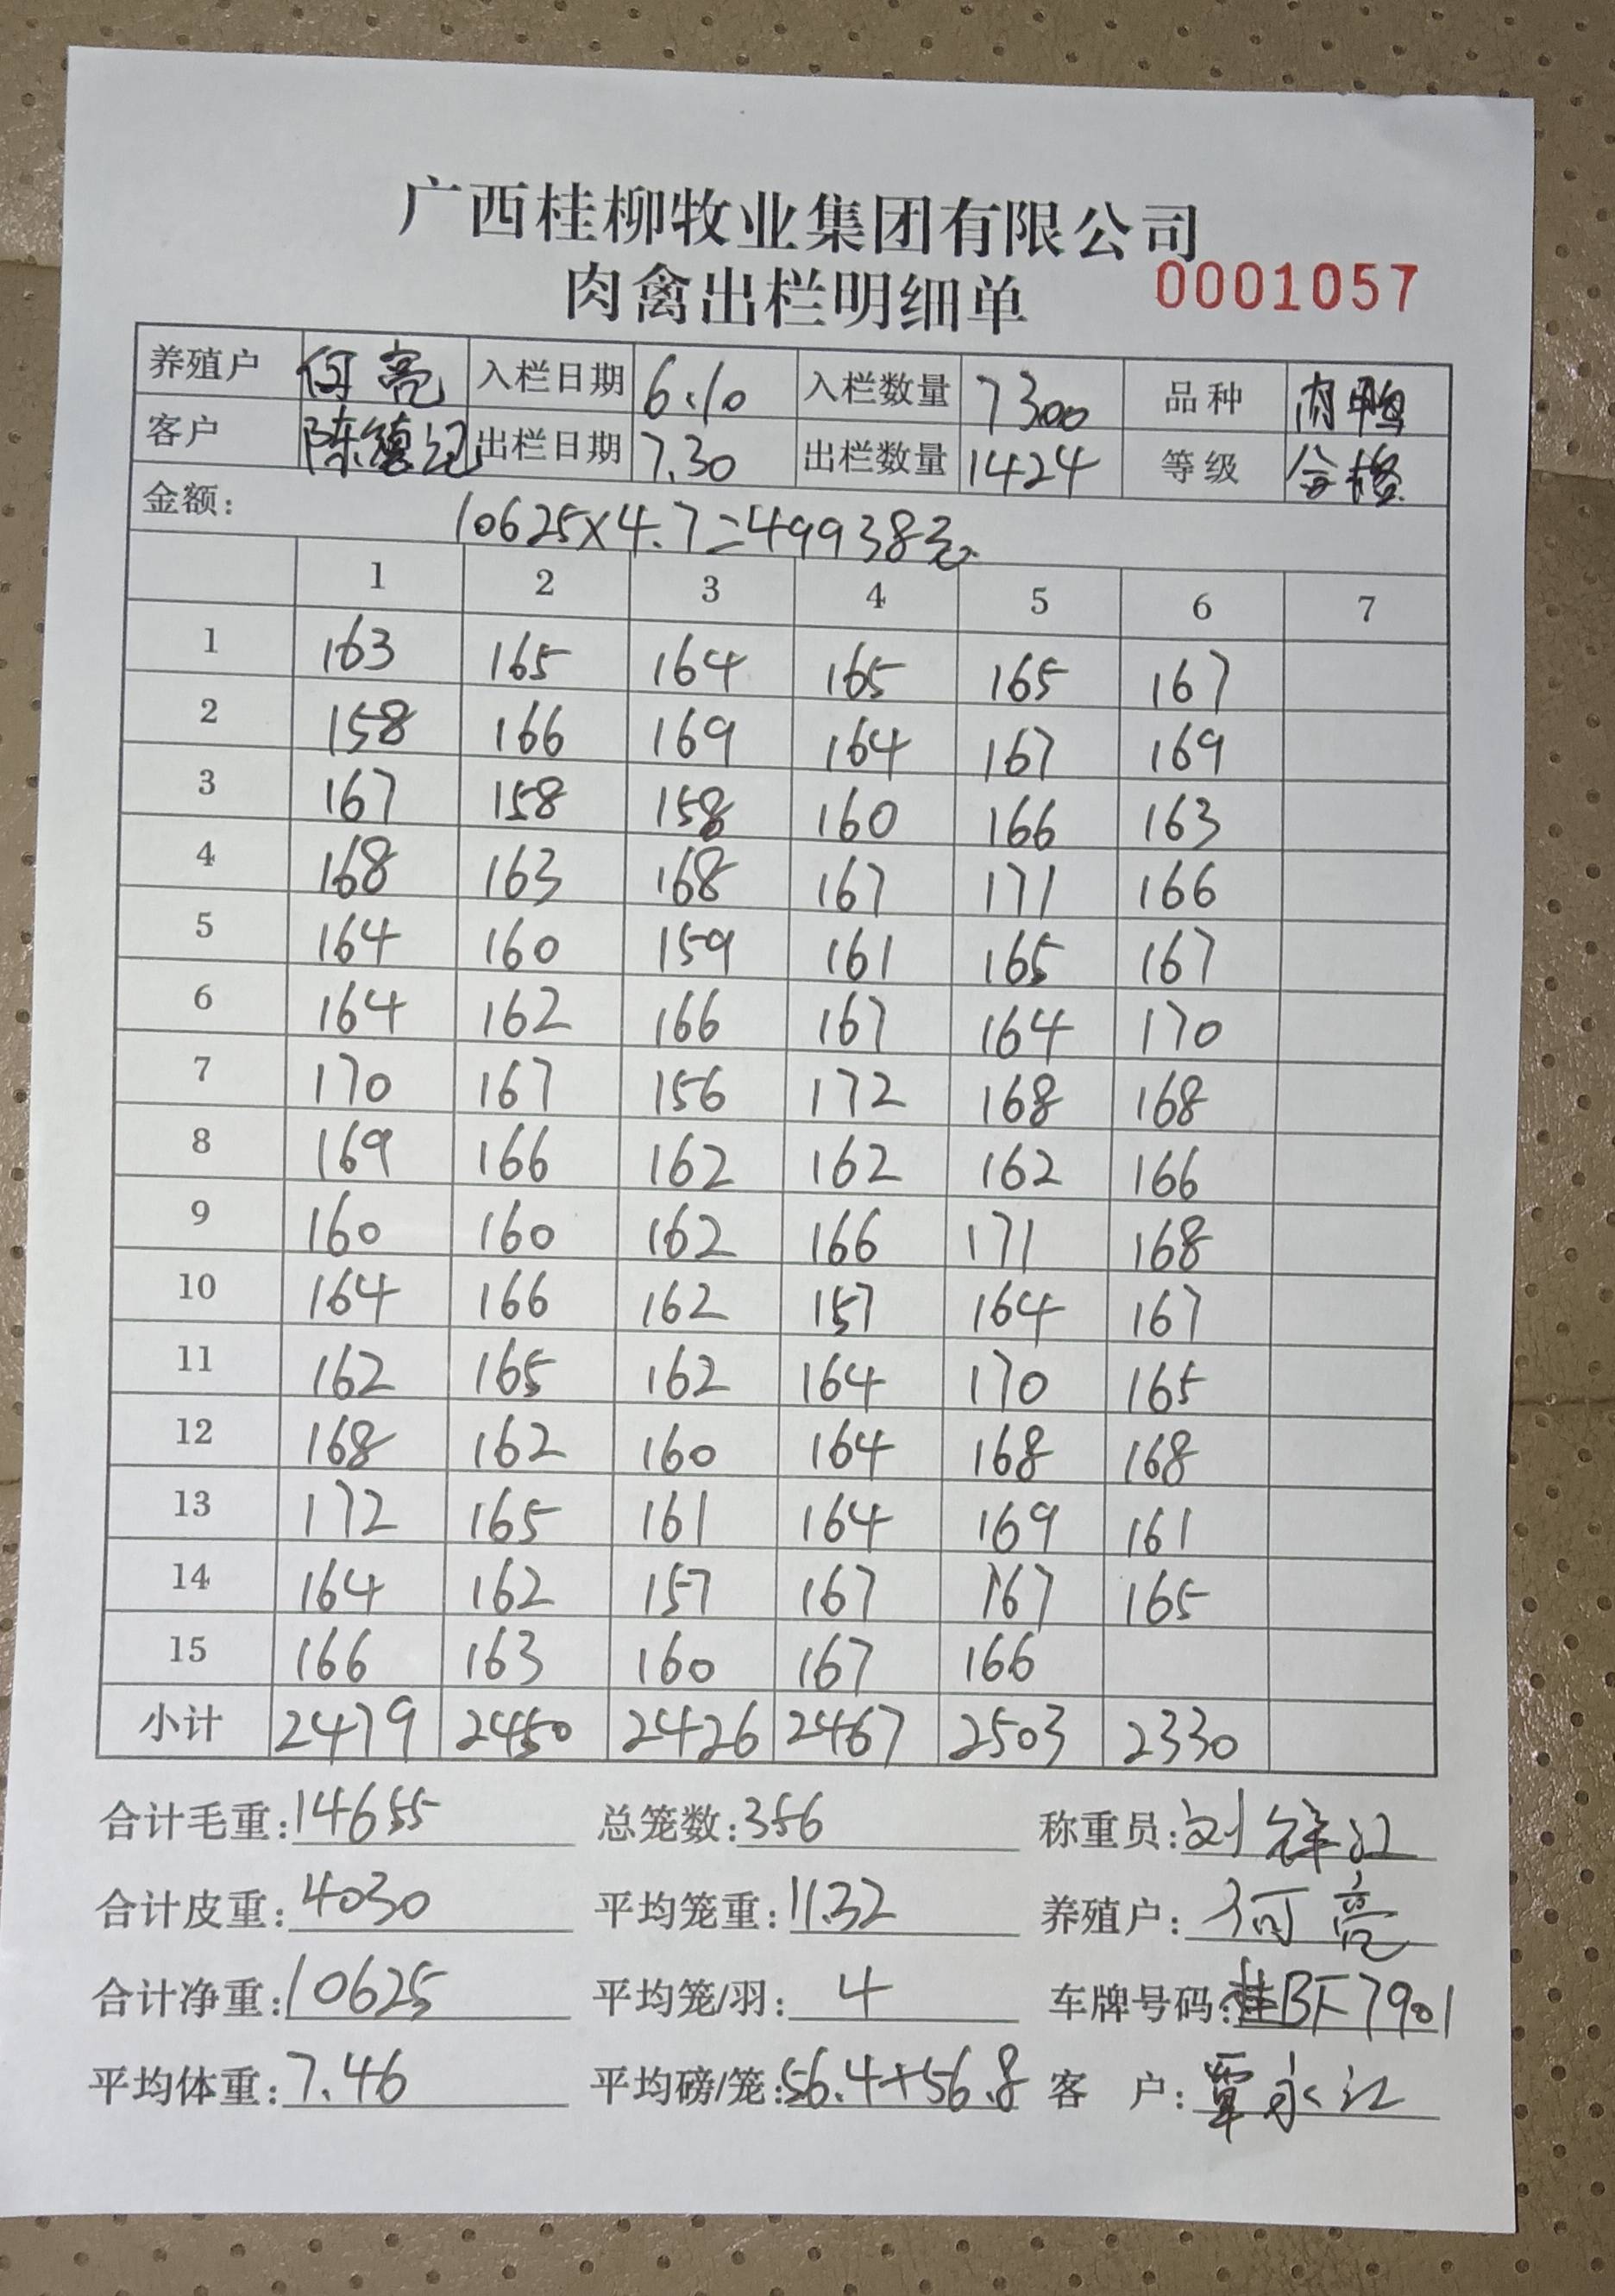 广西桂柳牧业集团有限公司
肉禽出栏明细单 0001057
养殖户 何亮 入栏日期 6.10 入栏数量 7300 品种 肉鸭
客户 陈德记 出栏日期 7.30 出栏数量 1424 等级 合格
金额: 10625×4.7=49938元
1 2 3 4 5 6 7
1 163 165 164 165 165 167
2 158 166 169 164 167 169
3 167 158 158 160 166 163
4 168 163 168 167 171 166
5 164 160 159 161 165 167
6 164 162 166 167 164 170
7 170 167 156 172 168 168
8 169 166 162 162 162 166
9 160 160 162 166 171 168
10 164 166 162 157 164 167
11 162 165 162 164 170 165
12 168 162 160 164 168 168
13 172 165 161 164 169 161
14 164 162 157 167 167 165
15 166 163 160 167 166
小计 2479 2450 2426 2467 2503 2330
合计毛重: 14655 总笼数: 356 称重员: 刘
合计皮重: 4030 平均笼重: 11.32 养殖户: 何亮
合计净重: 10625 平均笼/羽: 4 车牌号码: 桂BF7901
平均体重: 7.46 平均磅/笼: 56.4+56.8 客 户: 覃永江